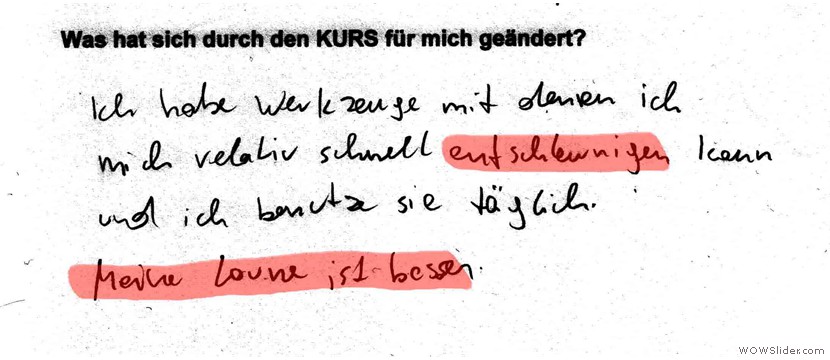 Was hat sich durch den KURS für mich geändert?
Ich habe Werkzeuge mit denen ich
mich relativ schnell entschleunigen kann
und ich benutze sie täglich.
Meine Laune ist besser.
WOWSlider.com